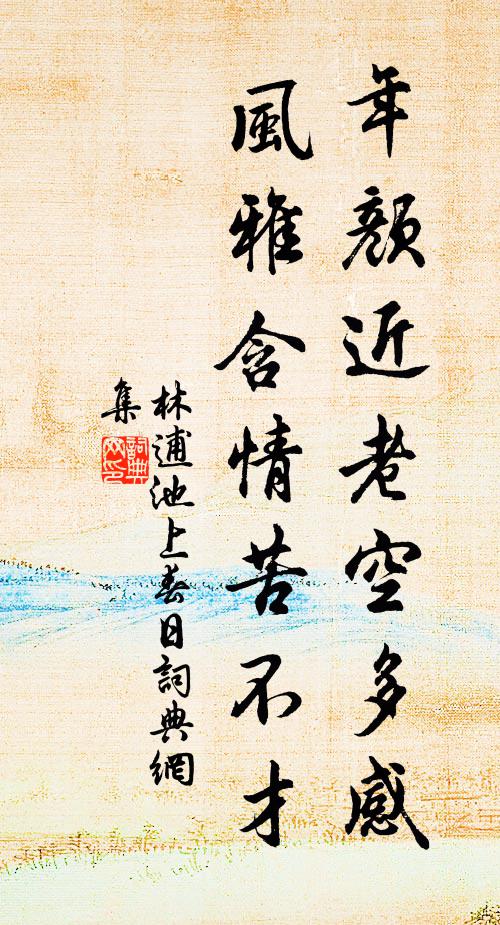 年顏近老空多感
風雅含情苦不才
林逋池上春日詞典網
集
詞典
网印